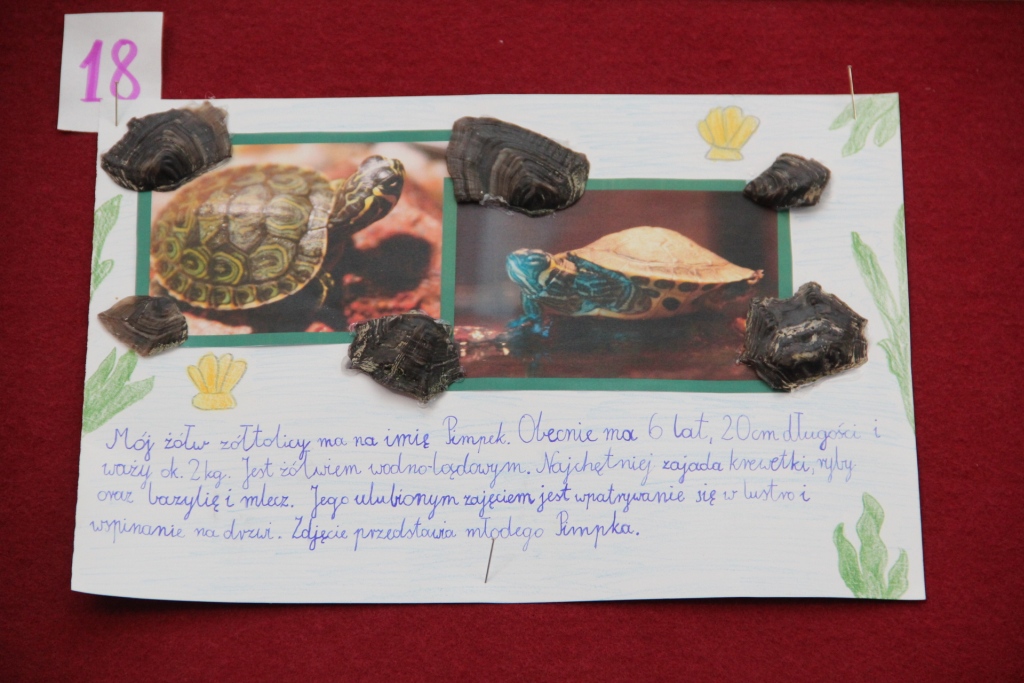 18
Mój żółw żółtolicy ma na imię Pimpek. Obecnie ma 6 lat, 20cm długości i
waży ok. 2 kg. Jest żółwiem wodno-lądowym. Najchętniej zajada krewetki, ryby
oraz bazylię i mlecz. Jego ulubionym zajęciem jest wpatrywanie się w lustro i
wspinanie na drzwi. Zdjęcie przedstawia młodego Pimpka.